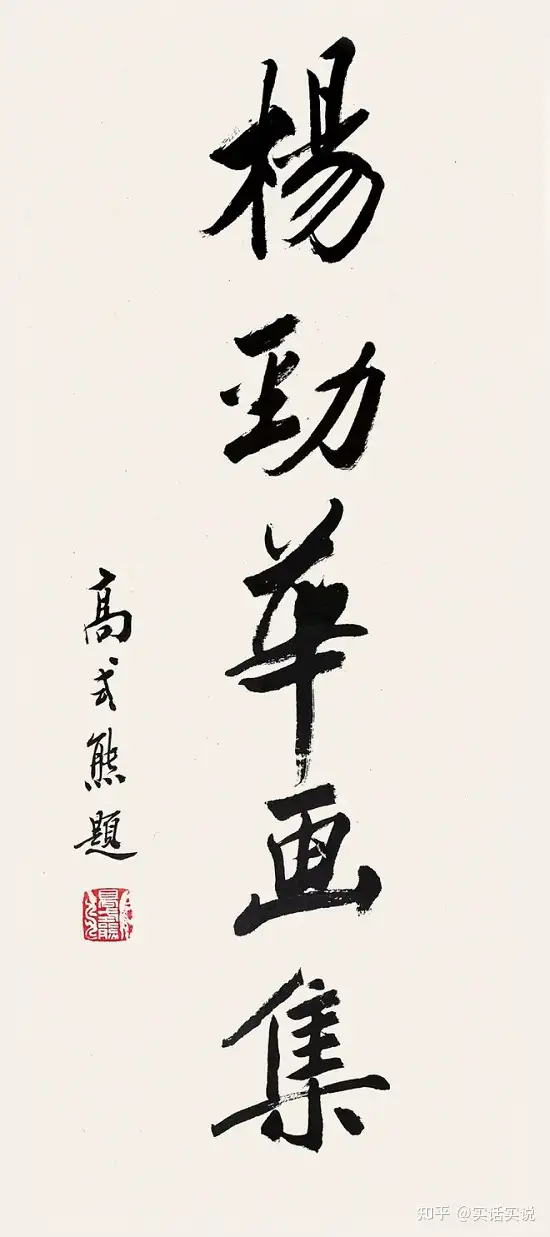 楊勁華画集
高式熊題
知乎 @实话实说